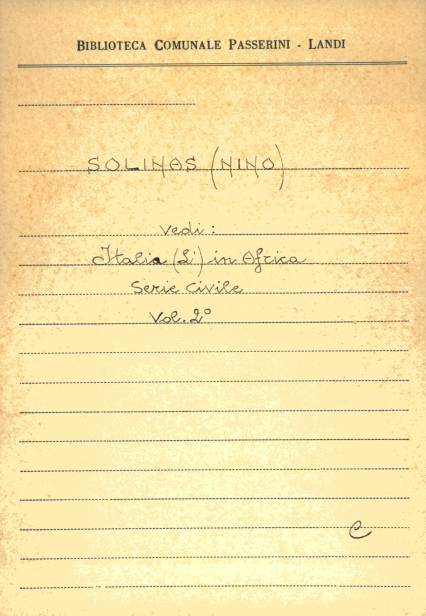 BIBLIOTECA COMUNALE PASSERINI - LANDI
SOLINAS (NINO)
Vedi:
Italia (L') in Africa
Serie Civile
Vol. 2°
C